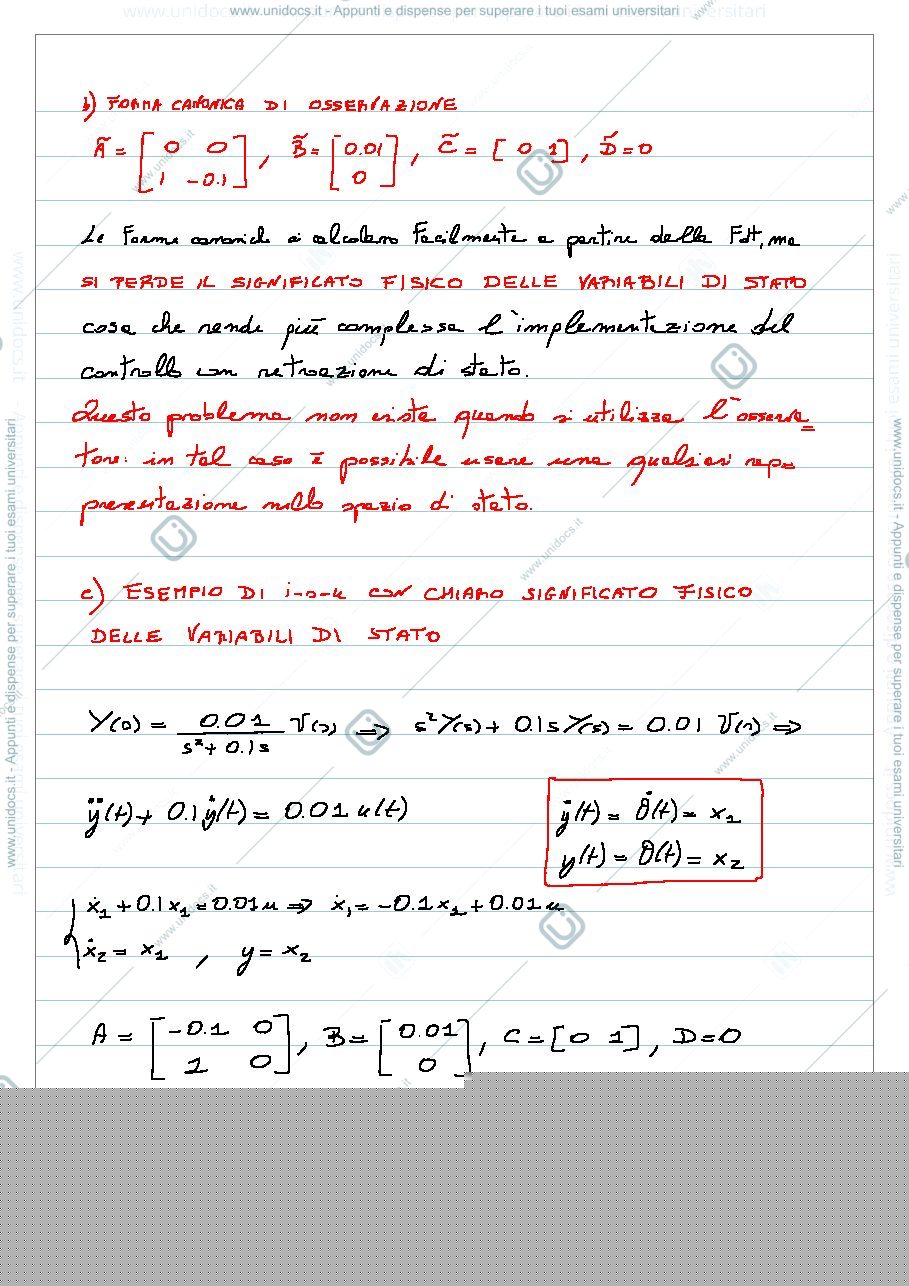 www.unidocs.it - Appunti e dispense per superare i tuoi esami universitari
b) FORMA CANONICA DI OSSERVAZIONE
Ã = [ 0 0 ; 1 -0.1 ] , B̃ = [ 0.01 ; 0 ] , C̃ = [ 0 1 ] , D̃ = 0
Le Forme canoniche si calcolano Facilmente a partire dalla FdT, ma
SI PERDE IL SIGNIFICATO FISICO DELLE VARIABILI DI STATO
cosa che rende più complessa l'implementazione del
controllo con retroazione di stato.
Questo problema non esiste quando si utilizza l'osserva=
tore: in tal caso è possibile usare una qualsiasi rap-
presentazione nello spazio di stato.
c) ESEMPIO DI i-s-u CON CHIARO SIGNIFICATO FISICO
DELLE VARIABILI DI STATO
Y(s) = 0.01 / (s² + 0.1s) U(s) ⇒ s²Y(s) + 0.1sY(s) = 0.01 U(s) ⇒
ÿ(t) + 0.1ẏ(t) = 0.01 u(t)
ẏ(t) = θ̇(t) = x₁
y(t) = θ(t) = x₂
ẋ₁ + 0.1x₁ = 0.01u ⇒ ẋ₁ = -0.1x₁ + 0.01u
ẋ₂ = x₁ , y = x₂
A = [ -0.1 0 ; 1 0 ] , B = [ 0.01 ; 0 ] , C = [ 0 1 ] , D = 0
www.unidocs.it - Appunti e dispense per superare i tuoi esami universitari
www.unidocs.it - Appunti e dispense per superare i tuoi esami universitari